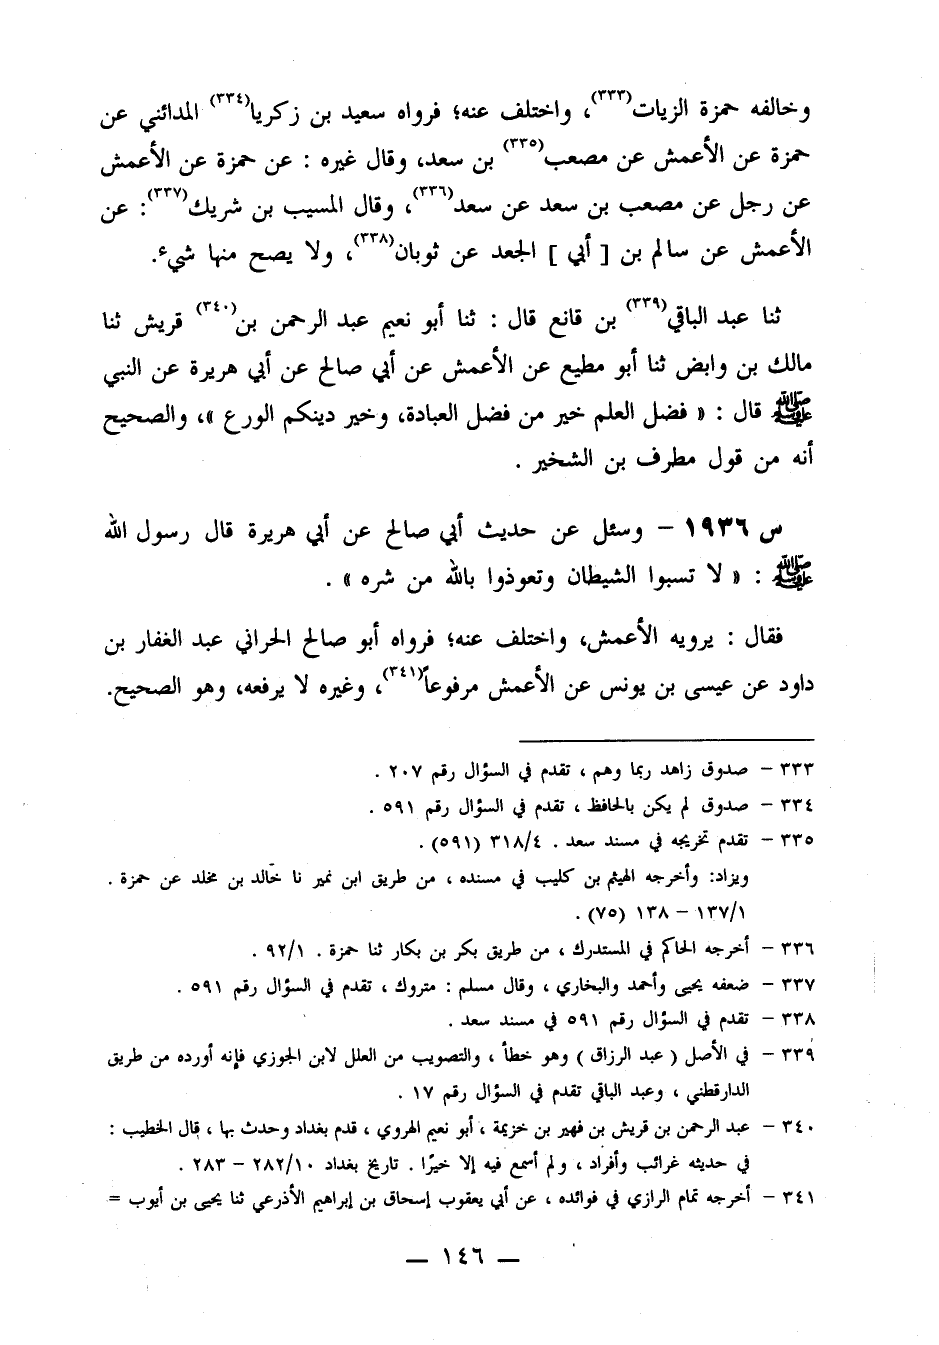 وخالفه حمزة الزيات(٣٣٣)، واختلف عنه؛ فرواه سعيد بن زكريا(٣٣٤) المدائني عن
حمزة عن الأعمش عن مصعب(٣٣٥) بن سعد، وقال غيره : عن حمزة عن الأعمش
عن رجل عن مصعب بن سعد عن سعد(٣٣٦)، وقال المسيب بن شريك(٣٣٧): عن
الأعمش عن سالم بن [ أبي ] الجعد عن ثوبان(٣٣٨)، ولا يصح منها شيء.
ثنا عبد الباقي(٣٣٩) بن قانع قال : ثنا أبو نعيم عبد الرحمن بن(٣٤٠) قريش ثنا
مالك بن وابض ثنا أبو مطيع عن الأعمش عن أبي صالح عن أبي هريرة عن النبي
ﷺ قال : « فضل العلم خير من فضل العبادة، وخير دينكم الورع »، والصحيح
أنه من قول مطرف بن الشخير .
س ١٩٣٦ – وسئل عن حديث أبي صالح عن أبي هريرة قال رسول الله
ﷺ : « لا تسبوا الشيطان وتعوذوا بالله من شره » .
فقال : يرويه الأعمش، واختلف عنه؛ فرواه أبو صالح الحراني عبد الغفار بن
داود عن عيسى بن يونس عن الأعمش مرفوعاً(٣٤١)، وغيره لا يرفعه، وهو الصحيح.
٣٣٣ – صدوق زاهد ربما وهم ، تقدم في السؤال رقم ٢٠٧ .
٣٣٤ – صدوق لم يكن بالحافظ ، تقدم في السؤال رقم ٥٩١ .
٣٣٥ – تقدم تخريجه في مسند سعد . ٣١٨/٤ (٥٩١) .
ويزاد: وأخرجه الهيثم بن كليب في مسنده ، من طريق ابن نمير نا خالد بن مخلد عن حمزة .
١٣٧/١ – ١٣٨ (٧٥) .
٣٣٦ – أخرجه الحاكم في المستدرك ، من طريق بكر بن بكار ثنا حمزة . ٩٢/١ .
٣٣٧ – ضعفه يحيى وأحمد والبخاري ، وقال مسلم : متروك ، تقدم في السؤال رقم ٥٩١ .
٣٣٨ – تقدم في السؤال رقم ٥٩١ في مسند سعد .
٣٣٩ – في الأصل ( عبد الرزاق ) وهو خطأ ، والتصويب من العلل لابن الجوزي فإنه أورده من طريق
الدارقطني ، وعبد الباقي تقدم في السؤال رقم ١٧ .
٣٤٠ – عبد الرحمن بن قريش بن فهير بن خزيمة ، أبو نعيم الهروي ، قدم بغداد وحدث بها ، قال الخطيب :
في حديثه غرائب وأفراد ، ولم أسمع فيه إلا خيرًا . تاريخ بغداد ٢٨٢/١٠ – ٢٨٣ .
٣٤١ – أخرجه تمام الرازي في فوائده ، عن أبي يعقوب إسحاق بن إبراهيم الأذرعي ثنا يحيى بن أيوب =
— ١٤٦ —